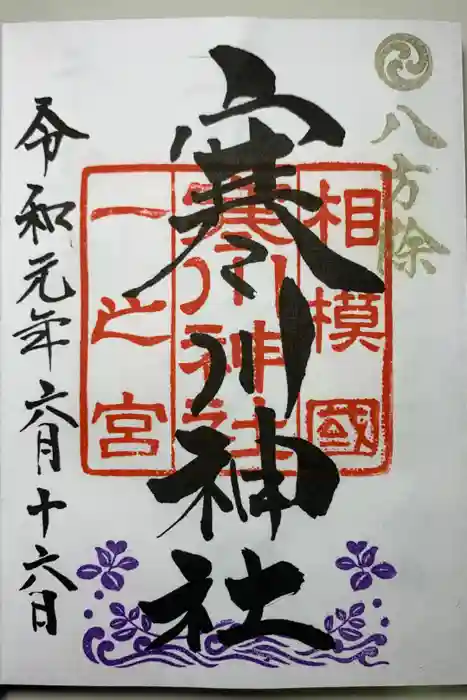 八方除
相模國
寒川神社
一之宮
寒川神社
令和元年六月十六日